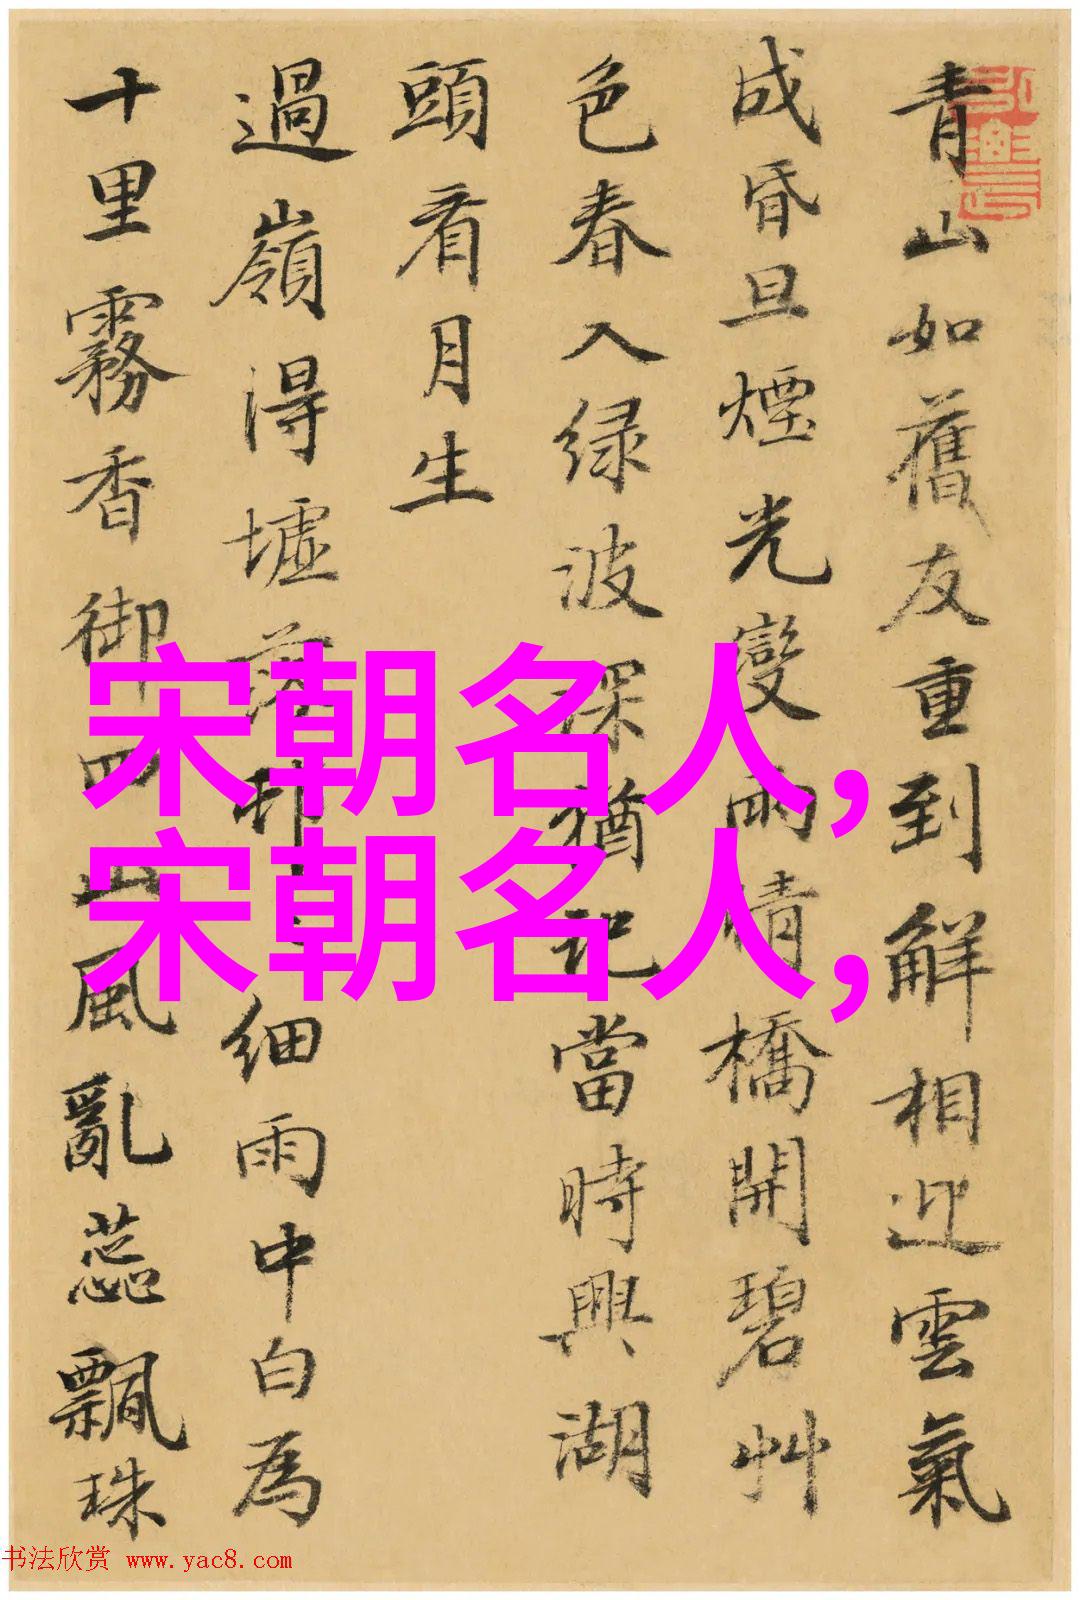 青山如舊友重到解相迎雲氣
成昏旦煙光變雨晴橋開碧艸
色春入绿波深猶記當時興湖
頭看月生
過嶺得墟落邨細雨中白為
十里霧香御四山風亂蕊飄珠
宋朝名人,
宋朝名人,
书法欣赏 www.yac8.com